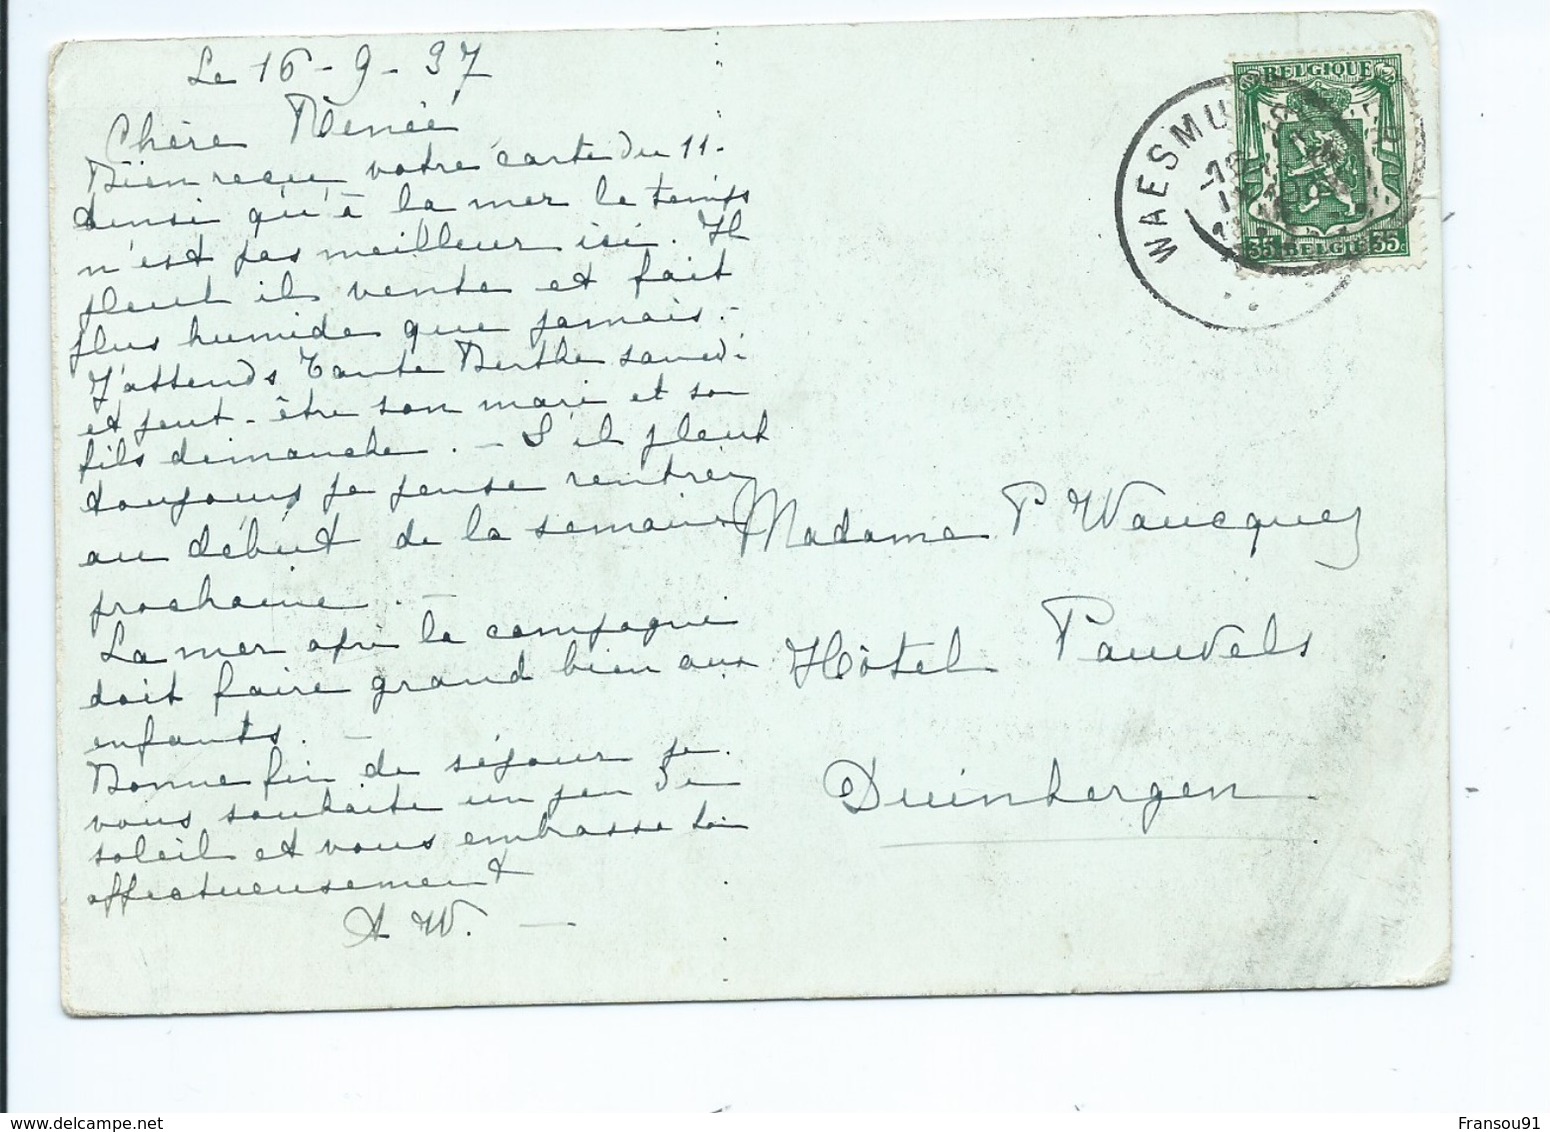 Le 16-9-37
Chère Renée
Bien reçu votre carte du 11-
ainsi qu'à la mer le temps
n'est pas meilleur ici. Il
pleut il vente et fait
plus humide que jamais.-
J'attends Tante Berthe samedi
et peut-être son mari et son
fils dimanche. - S'il pleut
toujours je pense rentrer
au début de la semaine
prochaine. -
La mer après la campagne
doit faire grand bien aux
enfants. -
Bonne fin de séjour je
vous souhaite un peu de
soleil et vous embrasse
affectueusement
A W. -
BELGIQUE
35c BELGIË 35c
WAESMU
Madame P Waucquez
Hôtel Pauwels
Duinbergen
Fransou91
www.delcampe.net